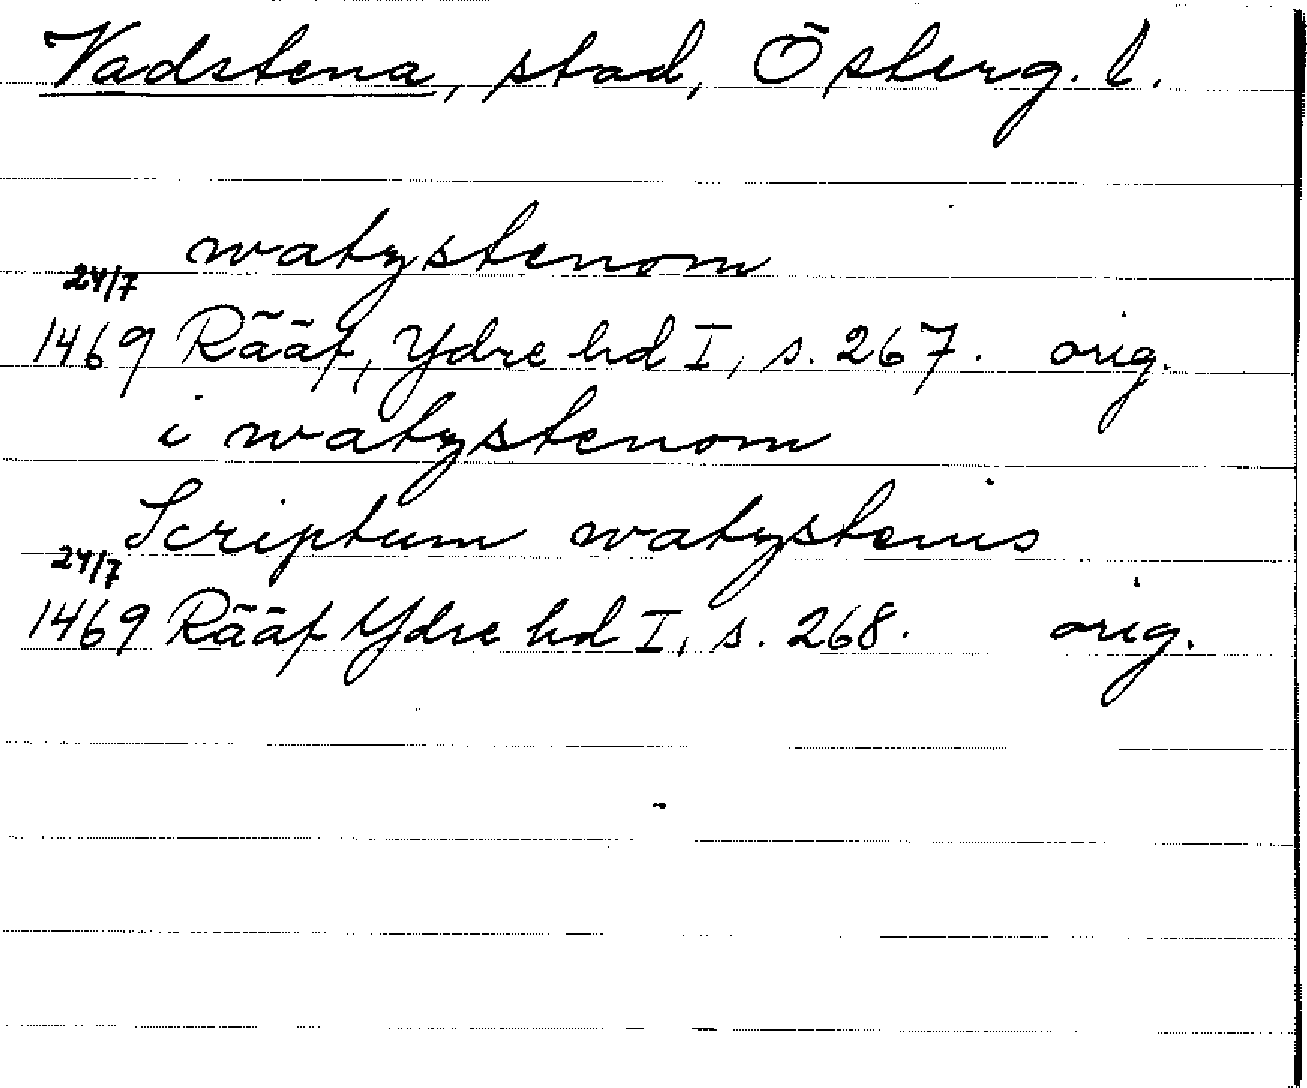 Vadstena, stad, Österg. l.
watzstenom
24/7
1469 Rääf, Ydre hd I, s. 267. orig.
i watzstenom
Scriptum watzstenis
24/7
1469 Rääf Ydre hd I, s. 268. orig.